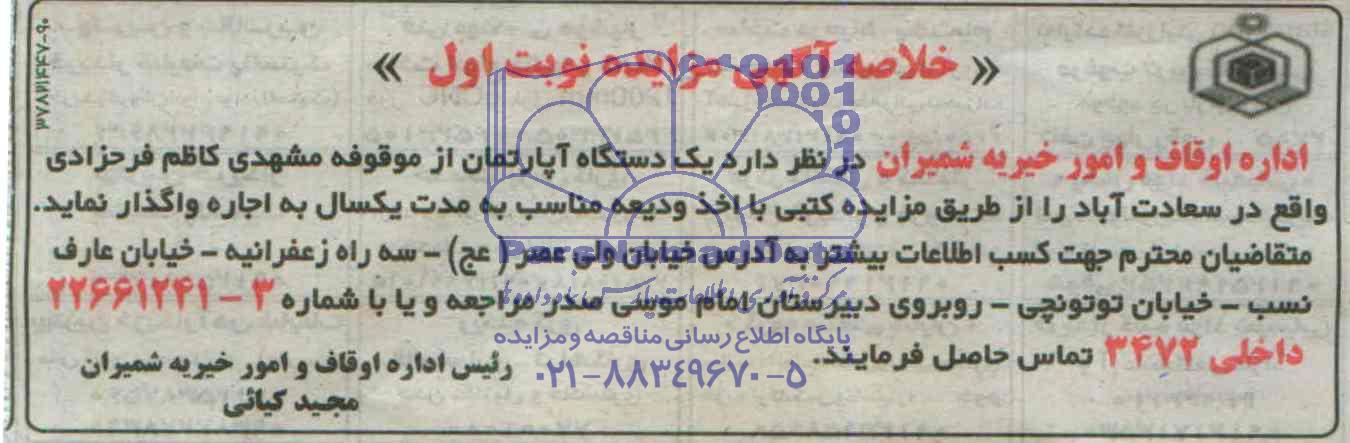 « خلاصه آگهی مزایده نوبت اول »
اداره اوقاف و امور خیریه شمیران در نظر دارد یک دستگاه آپارتمان از موقوفه مشهدی کاظم فرحزادی
واقع در سعادت آباد را از طریق مزایده کتبی با اخذ ودیعه مناسب به مدت یکسال به اجاره واگذار نماید.
متقاضیان محترم جهت کسب اطلاعات بیشتر به آدرس خیابان ولی عصر ( عج) – سه راه زعفرانیه – خیابان عارف
نسب – خیابان توتونچی – روبروی دبیرستان امام موسی صدر مراجعه و یا با شماره ۳ – ۲۲۶۶۱۲۴۱
داخلی ۳۴۷۲ تماس حاصل فرمایند.
رئیس اداره اوقاف و امور خیریه شمیران
مجید کیائی
ParsNamadData
پایگاه اطلاع رسانی مناقصه و مزایده
۰۲۱-۸۸۳۴۹۶۷۰-۵